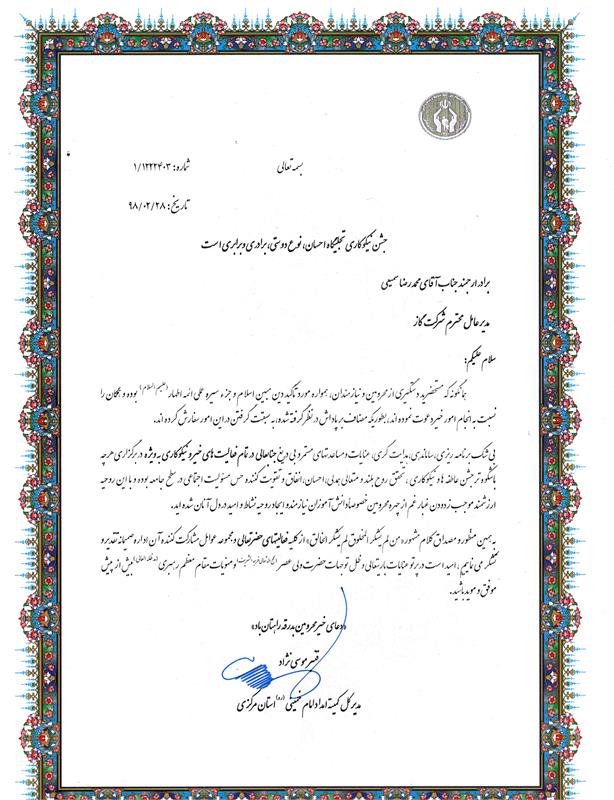 بسمه تعالی
شماره: ۱/۱۲۲۲۴۰۳
تاریخ: ۹۸/۰۲/۲۸
جشن نیکوکاری تجلیگاه احسان، نوع دوستی، برادری و برابری است
برادر ارجمند جناب آقای محمدرضا سمیعی
مدیرعامل محترم شرکت گاز
سلام علیکم:
همانگونه که مستحضرید دستگیری از محرومین و نیازمندان، همواره مورد تاکید دین مبین اسلام و جزء سیره عملی ائمه اطهار (علیهم السلام) بوده و همگان را
نسبت به انجام امور خیر دعوت نموده اند، بطوریکه مضاف بر پاداش در نظر گرفته شده، به سبقت گرفتن در این امور سفارش کرده اند.
بی شک برنامه ریزی، ساماندهی، هدایت گری، عنایات و مساعدتهای مستمر و بی دریغ جنابعالی در تمام فعالیت های خیر و نیکوکاری به ویژه در برگزاری هرچه
باشکوه تر جشن عاطفه ها و نیکوکاری، تحقق روح بلند و متعالی همدلی، احسان، انفاق و تقویت کننده حس مسئولیت اجتماعی در سطح جامعه بوده و با این روحیه
ارزشمند موجب زدودن غبار غم از چهره محرومین خصوصا دانش آموزان نیازمند و ایجاد روحیه نشاط و امید در دل آنان شده اید.
به همین منظور و مصداق کلام مشهور «من لم یشکر المخلوق لم یشکر الخالق» از کلیه فعالیتهای حضرتعالی و مجموعه عوامل مشارکت کننده آن اداره صمیمانه تقدیر و
تشکر می نمایم، امید است در پرتو عنایات باریتعالی و ظل توجهات حضرت ولی عصر (عج الله تعالی فرجه الشریف) و منویات مقام معظم رهبری (مدظله العالی) بیش از پیش
موفق و موید باشید.
«دعای خیر محرومین بدرقه راهتان باد»
قنبر موسی نژاد
مدیر کل کمیته امداد امام خمینی (ره) استان مرکزی